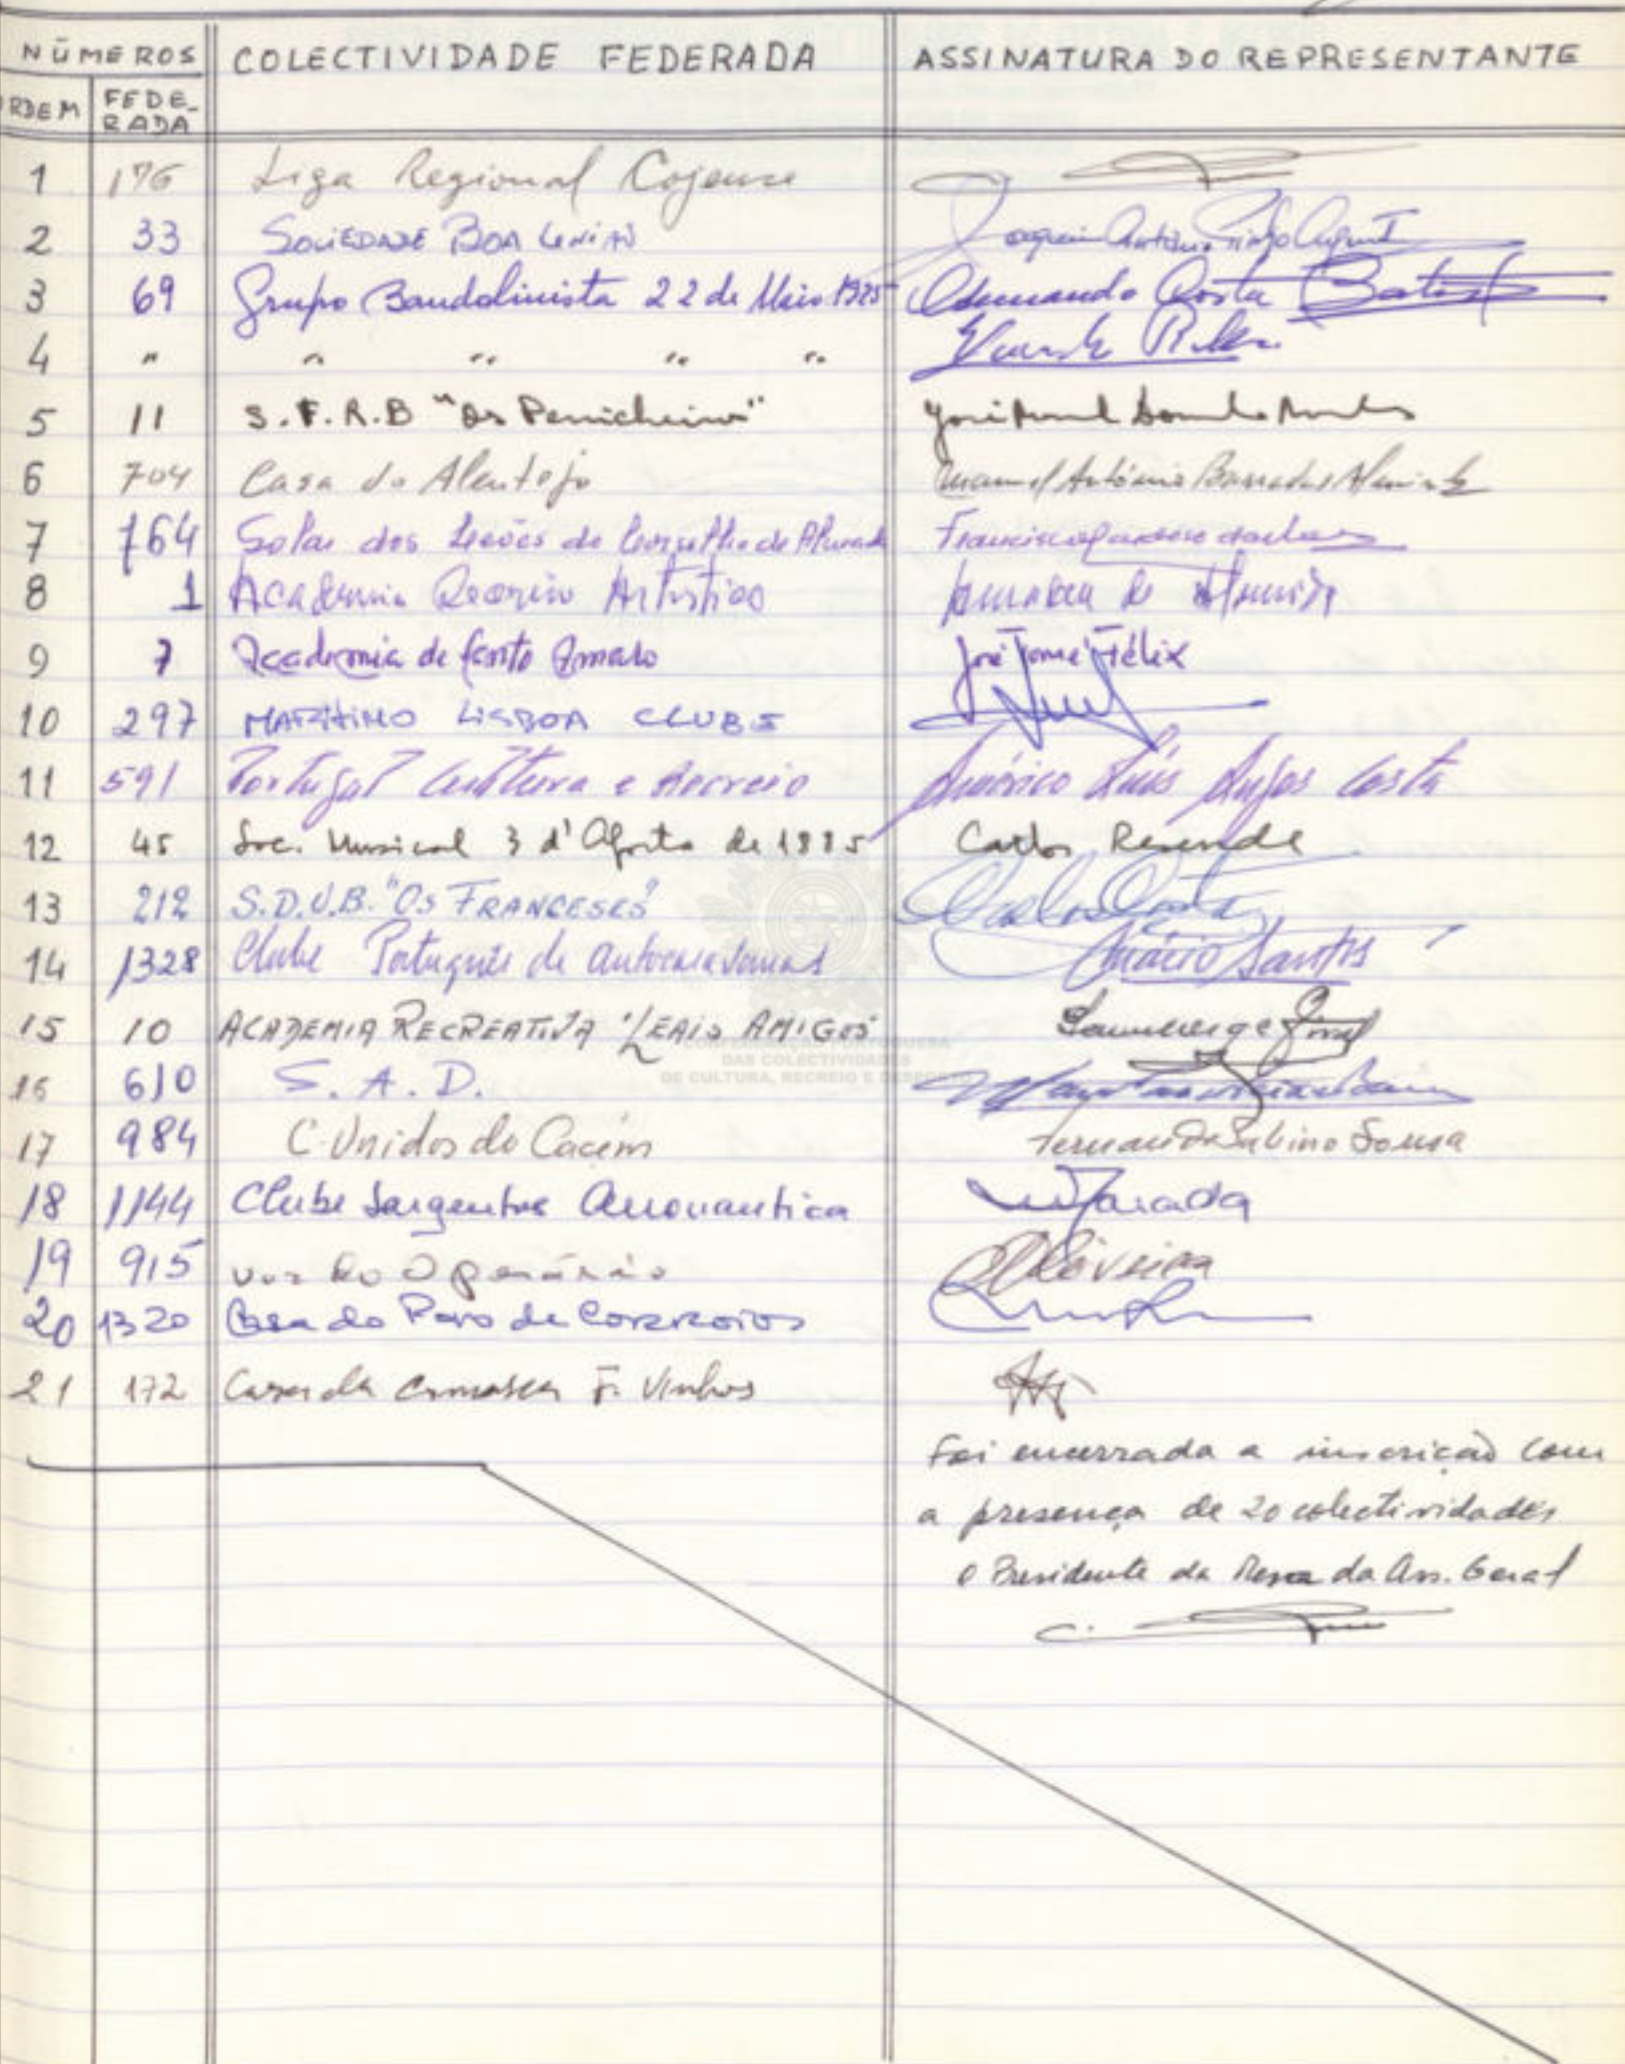 NÚMEROS COLECTIVIDADE FEDERADA ASSINATURA DO REPRESENTANTE
ORDEM FEDERADA
1 176 Liga Regional Cojense
2 33 SOCIEDADE BOA UNIÃO Joaquim António
3 69 Grupo Bandolinista 22 de Maio 1925 Armando Costa Batista
4 " " " " "
5 11 S.F.R.B "Os Penicheiros" José
6 704 Casa do Alentejo Manuel António Barradas
7 764 Solar dos Leões do Conselho de Almada Francisco
8 1 Academia Recreio Artistico de Almeida
9 7 Academia de Santo Amaro José Tomé Félix
10 297 MARITIMO LISBOA CLUBE
11 591 Portugal Cultura e Recreio Américo Luís Anjos Costa
12 45 Soc. Musical 3 d'Agosto de 1885 Carlos Resende
13 212 S.D.U.B. "OS FRANCESES" Carlos Costa
14 1328 Clube Português de Autocaravanas Santos
15 10 ACADEMIA RECREATIVA LEAIS AMIGOS
CONFEDERAÇÃO PORTUGUESA
DAS COLECTIVIDADES
DE CULTURA, RECREIO E DESPORTO
16 610 S.A.D.
17 984 C. Unidos do Cacém Fernando Sabino Sousa
18 1144 Clube Sargentos Aeronautica
19 915 Voz do Operário Oliveira
20 1320 Casa do Povo de CORROIOS
21 172 Casa da Comarca F. Vinhos
Foi encerrada a inscrição com
a presença de 20 colectividades
O Presidente da Mesa da Ass. Geral